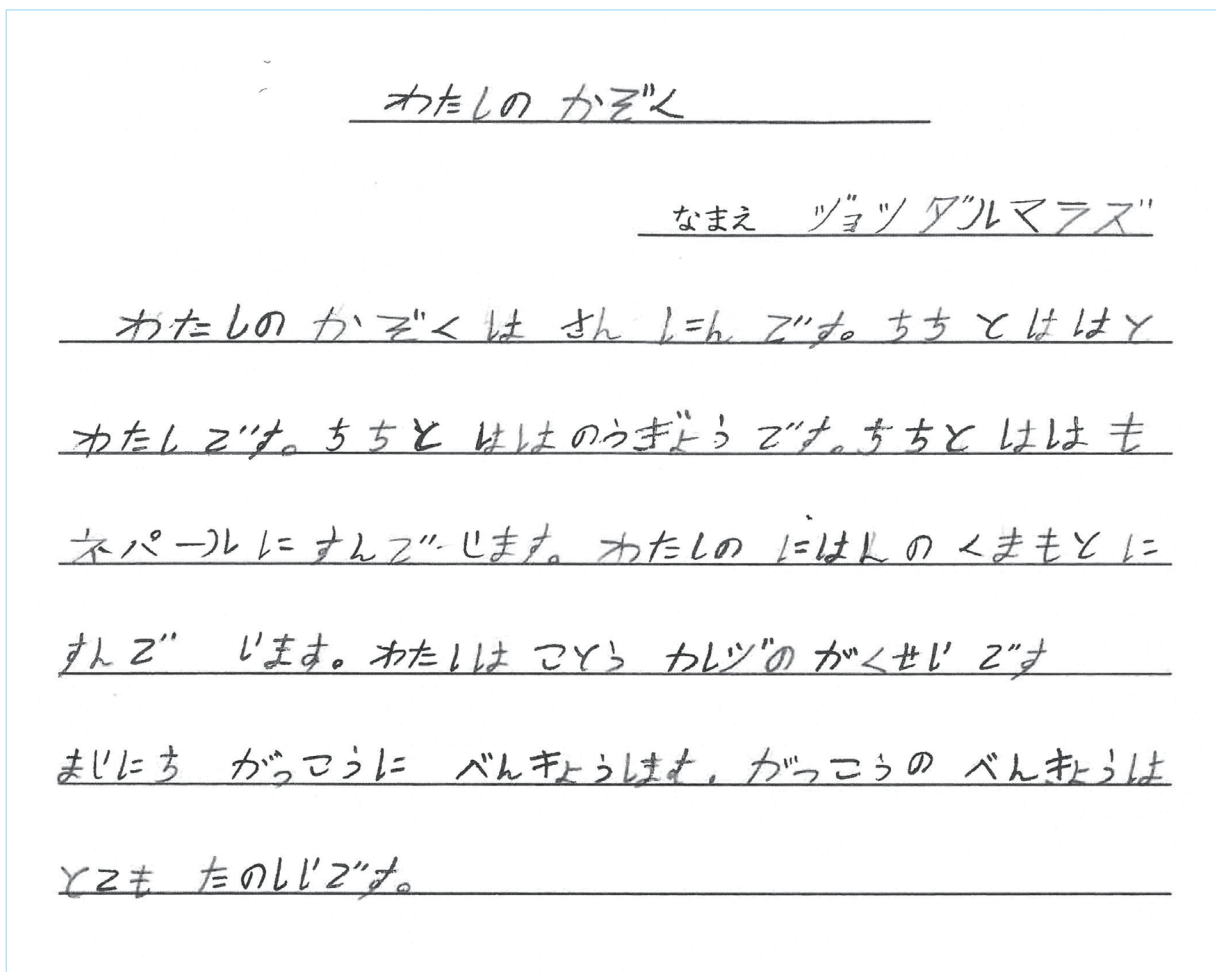 わたしの かぞく
なまえ ヅョツ ダルマラズ
わたしの かぞくは さん にん です。ちち と ははと
わたしです。ちちと ははのうぎょうです。ちちと ははも
ネパールに すんでいます。わたしの にほんの くまもとに
すんで います。わたしは ことう カレヅの がくせいです
まいにち がっこうに べんきょうします。がっこうの べんきょうは
とても たのしいです。